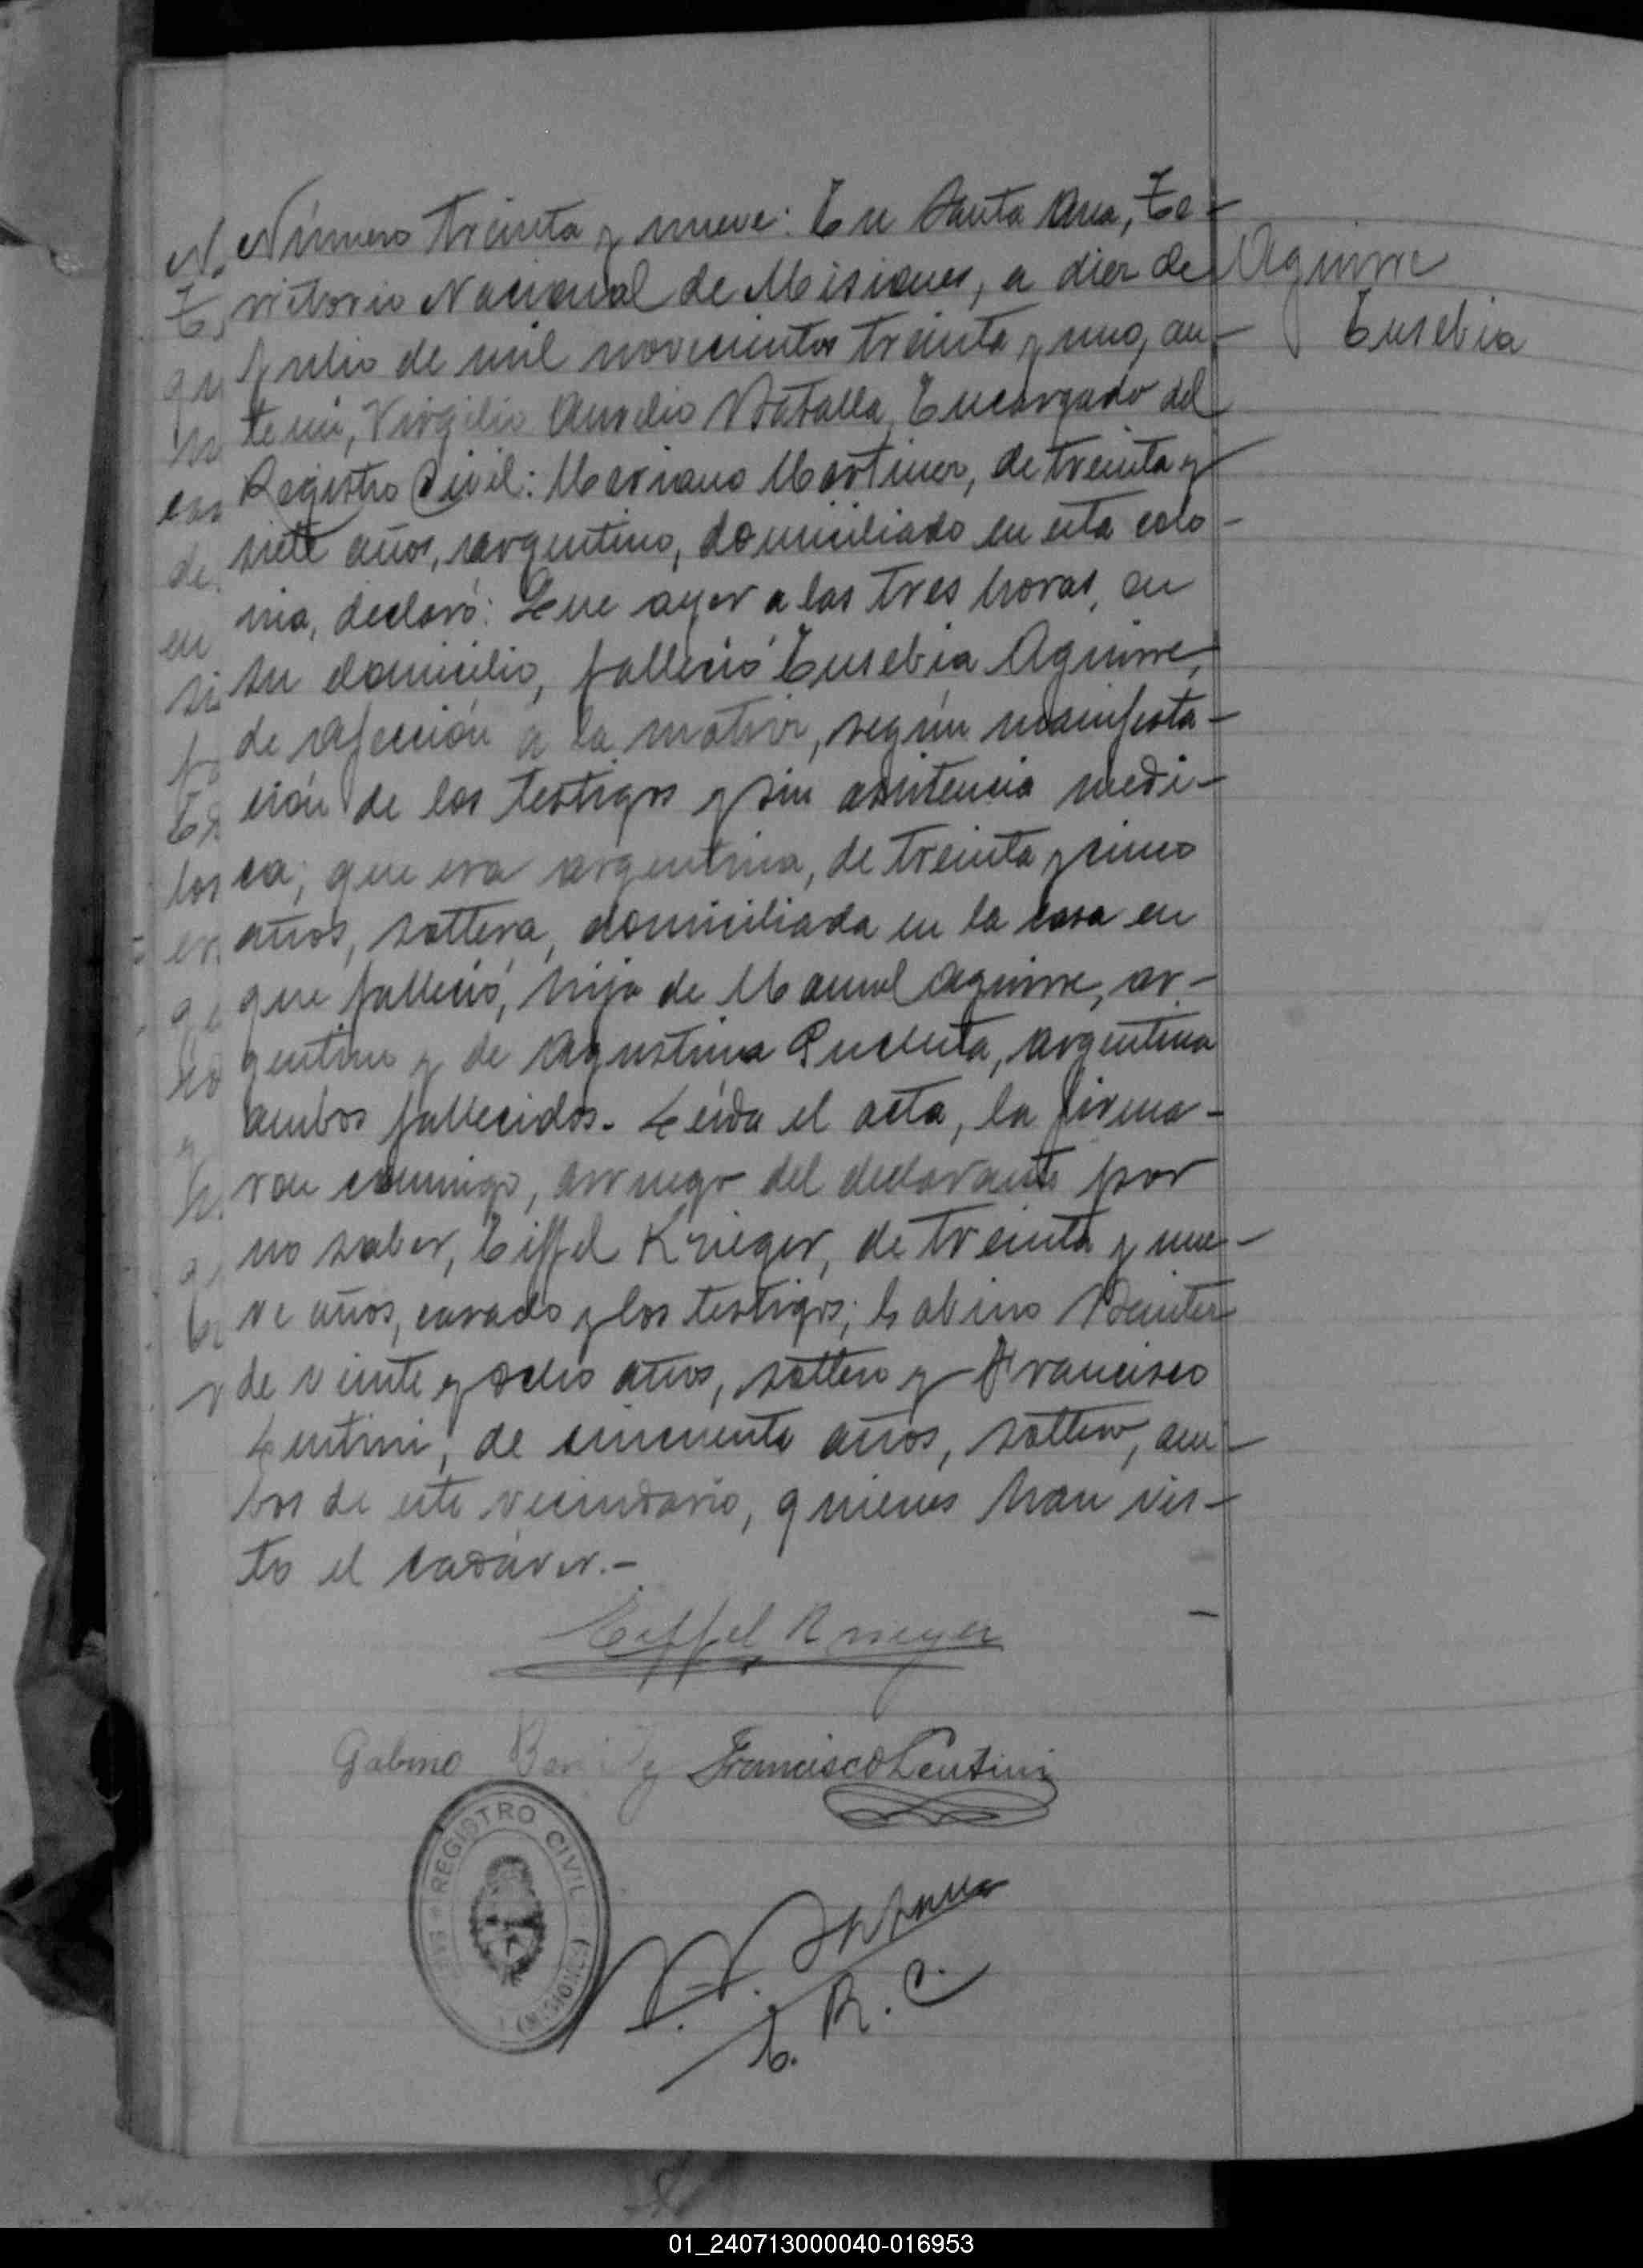 Número treinta y nueve: En Santa Ana, Te-
rritorio Nacional de Misiones, a diez de
julio de mil novecientos treinta y uno, an-
te mi, Virgilio Aurelio Batalla, Encargado del
Registro Civil: Mariano Martinez, de treinta y
siete años, argentino, domiciliado en esta colo-
nia, declaró: Que ayer a las tres horas, en
su domicilio, falleció Eusebia Aguirre,
de afección a la matriz, según manifesta-
ción de los testigos y sin asistencia medi-
ca; que era argentina, de treinta y cinco
años, soltera, domiciliada en la casa en
que falleció, hija de Manuel Aguirre, ar-
gentino y de Agustina argentina
ambos fallecidos. Leída el acta, la firma-
ron conmigo, a ruego del declarante por
no saber, Eiffel Krieger, de treinta y nue-
ve años, casado y los testigos; Gabino Benitez
de veinte y ocho años, soltero y Francisco
Lentini, de cincuenta años, soltero, am-
bos de este vecindario, quienes han vis-
to el cadáver.-
Aguirre
Eusebia
Eiffel Krieger
Gabino Benitez Francisco Lentini
REGISTRO CIVIL
(MISIONES)
V. A. Batalla
E. R. C.
01_240713000040-016953